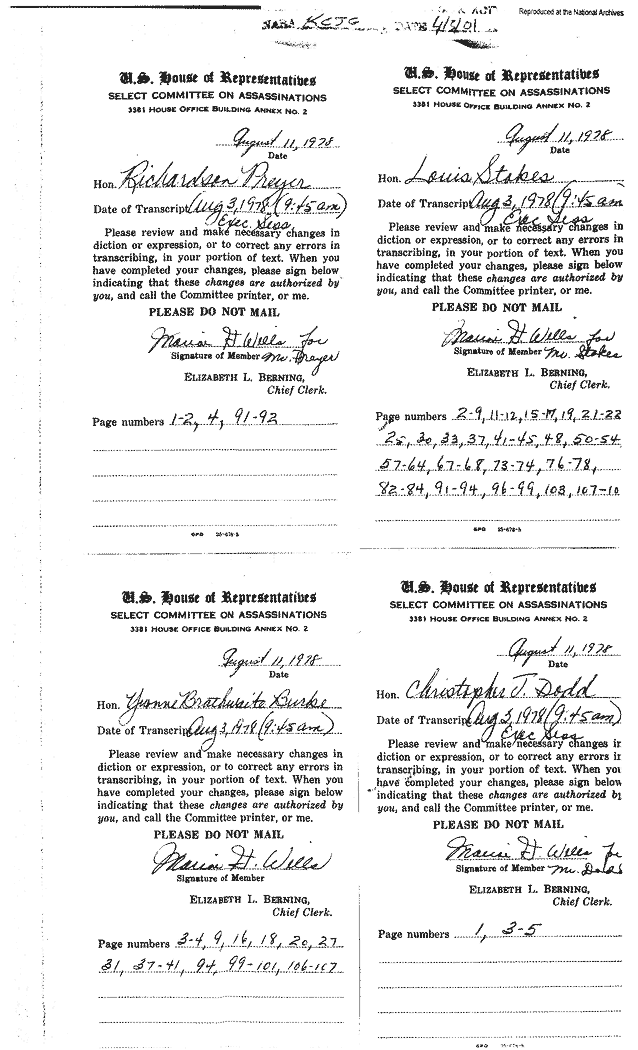 Reproduced at the National Archives
NARA KCJG DATE 4/3/01
U.S. House of Representatives
SELECT COMMITTEE ON ASSASSINATIONS
3381 HOUSE OFFICE BUILDING ANNEX NO. 2
August 11, 1978
Date
Hon. Richardson Preyer
Date of Transcript Aug 3, 1978 (9:45 am)
Exec Sess
Please review and make necessary changes in
diction or expression, or to correct any errors in
transcribing, in your portion of text. When you
have completed your changes, please sign below
indicating that these changes are authorized by
you, and call the Committee printer, or me.
PLEASE DO NOT MAIL
Marion H. Wills for
Signature of Member Mr. Preyer
ELIZABETH L. BERNING,
Chief Clerk.
Page numbers 1-2, 4, 91-92
GPO 25-678-b
U.S. House of Representatives
SELECT COMMITTEE ON ASSASSINATIONS
3381 HOUSE OFFICE BUILDING ANNEX NO. 2
August 11, 1978
Date
Hon. Louis Stokes
Date of Transcript Aug 3, 1978 (9:45 am)
Exec Sess
Please review and make necessary changes in
diction or expression, or to correct any errors in
transcribing, in your portion of text. When you
have completed your changes, please sign below
indicating that these changes are authorized by
you, and call the Committee printer, or me.
PLEASE DO NOT MAIL
Marion H. Wills for
Signature of Member Mr. Stokes
ELIZABETH L. BERNING,
Chief Clerk.
Page numbers 2-9, 11-12, 15-17, 19, 21-22
25, 30, 33, 37, 41-45, 48, 50-54
57-64, 67-68, 73-74, 76-78,
82-84, 91-94, 96-99, 103, 107-10
GPO 25-678-b
U.S. House of Representatives
SELECT COMMITTEE ON ASSASSINATIONS
3381 HOUSE OFFICE BUILDING ANNEX NO. 2
August 11, 1978
Date
Hon. Yvonne Brathwaite Burke
Date of Transcript Aug 3, 1978 (9:45 am)
Please review and make necessary changes in
diction or expression, or to correct any errors in
transcribing, in your portion of text. When you
have completed your changes, please sign below
indicating that these changes are authorized by
you, and call the Committee printer, or me.
PLEASE DO NOT MAIL
Marion H. Wills
Signature of Member
ELIZABETH L. BERNING,
Chief Clerk.
Page numbers 3-4, 9, 16, 18, 20, 27
31, 37-41, 94, 99-101, 106-107
U.S. House of Representatives
SELECT COMMITTEE ON ASSASSINATIONS
3381 HOUSE OFFICE BUILDING ANNEX NO. 2
August 11, 1978
Date
Hon. Christopher J. Dodd
Date of Transcript Aug 3, 1978 (9:45 am)
Exec Sess
Please review and make necessary changes in
diction or expression, or to correct any errors ir
transcribing, in your portion of text. When you
have completed your changes, please sign below
indicating that these changes are authorized by
you, and call the Committee printer, or me.
PLEASE DO NOT MAIL
Marion H. Wills for
Signature of Member Mr. Dodd
ELIZABETH L. BERNING,
Chief Clerk.
Page numbers 1, 3-5